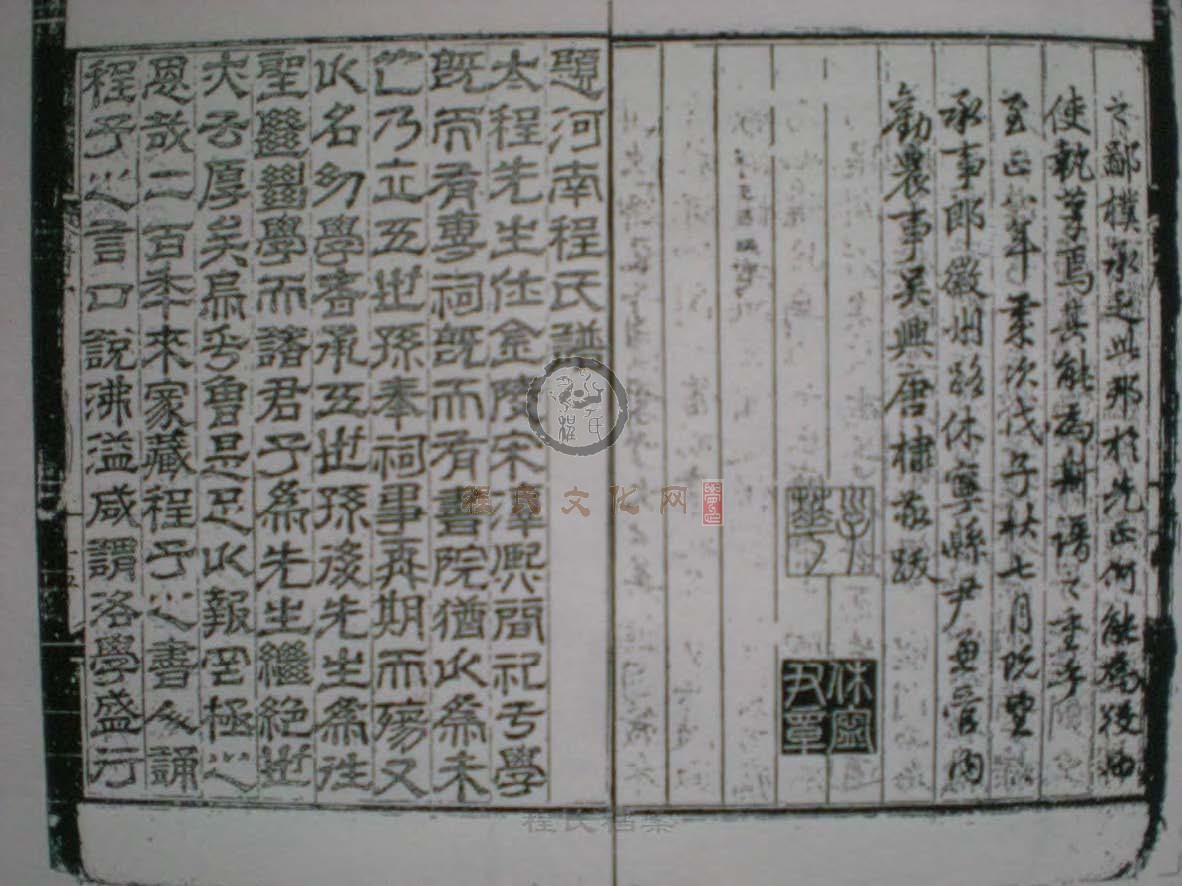 之鄙樸承乏此邦於先正何能為後而
使執筆焉其能為斯譜之重乎
至正年歲次戊子秋七月既望
承事郎徽州路休寧縣尹兼管內
勸農事吳興唐棣敬跋
子華
休寧尹章
題河南程氏譜
太程先生仕金陵宋淳熙間祀于學
既而有專祠既而有書院猶以為未
也乃立五世孫奉祠事再期而殤又
以名幼學者承五世孫後先生為往
聖繼絕學而諸君子為先生繼絕世
夫云厚矣烏乎曾是足以報罔極之
恩哉二百年來家藏程子之書人誦
程子之言口說沸溢咸謂洛學盛行
程氏
程氏文化网
程氏档案